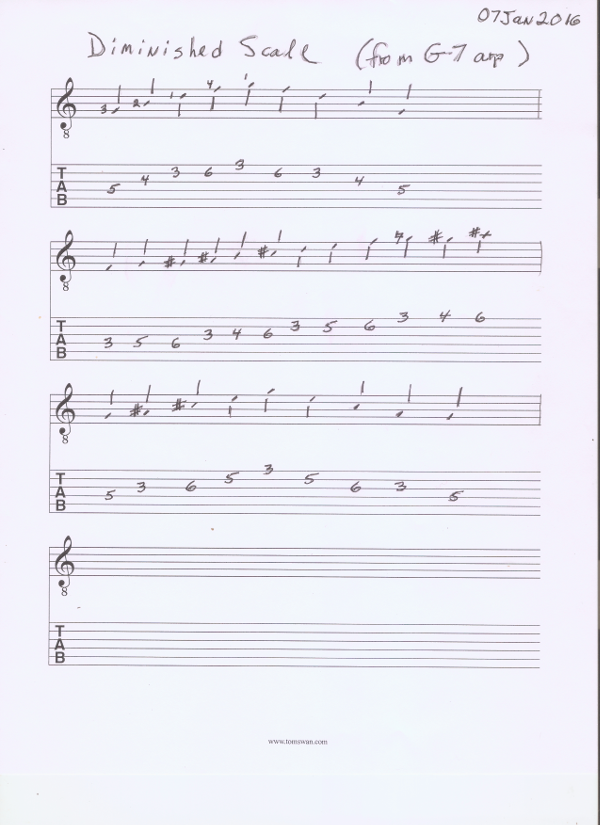 07Jan2016
Diminished Scale (from G-7 arp)
3 2 1 4 1
8
TAB 5 4 3 6 3 6 3 4 5
8
TAB 3 5 6 3 4 6 3 5 6 3 4 6
8
TAB 5 3 6 5 3 5 6 3 5
8
TAB
www.tomswan.com